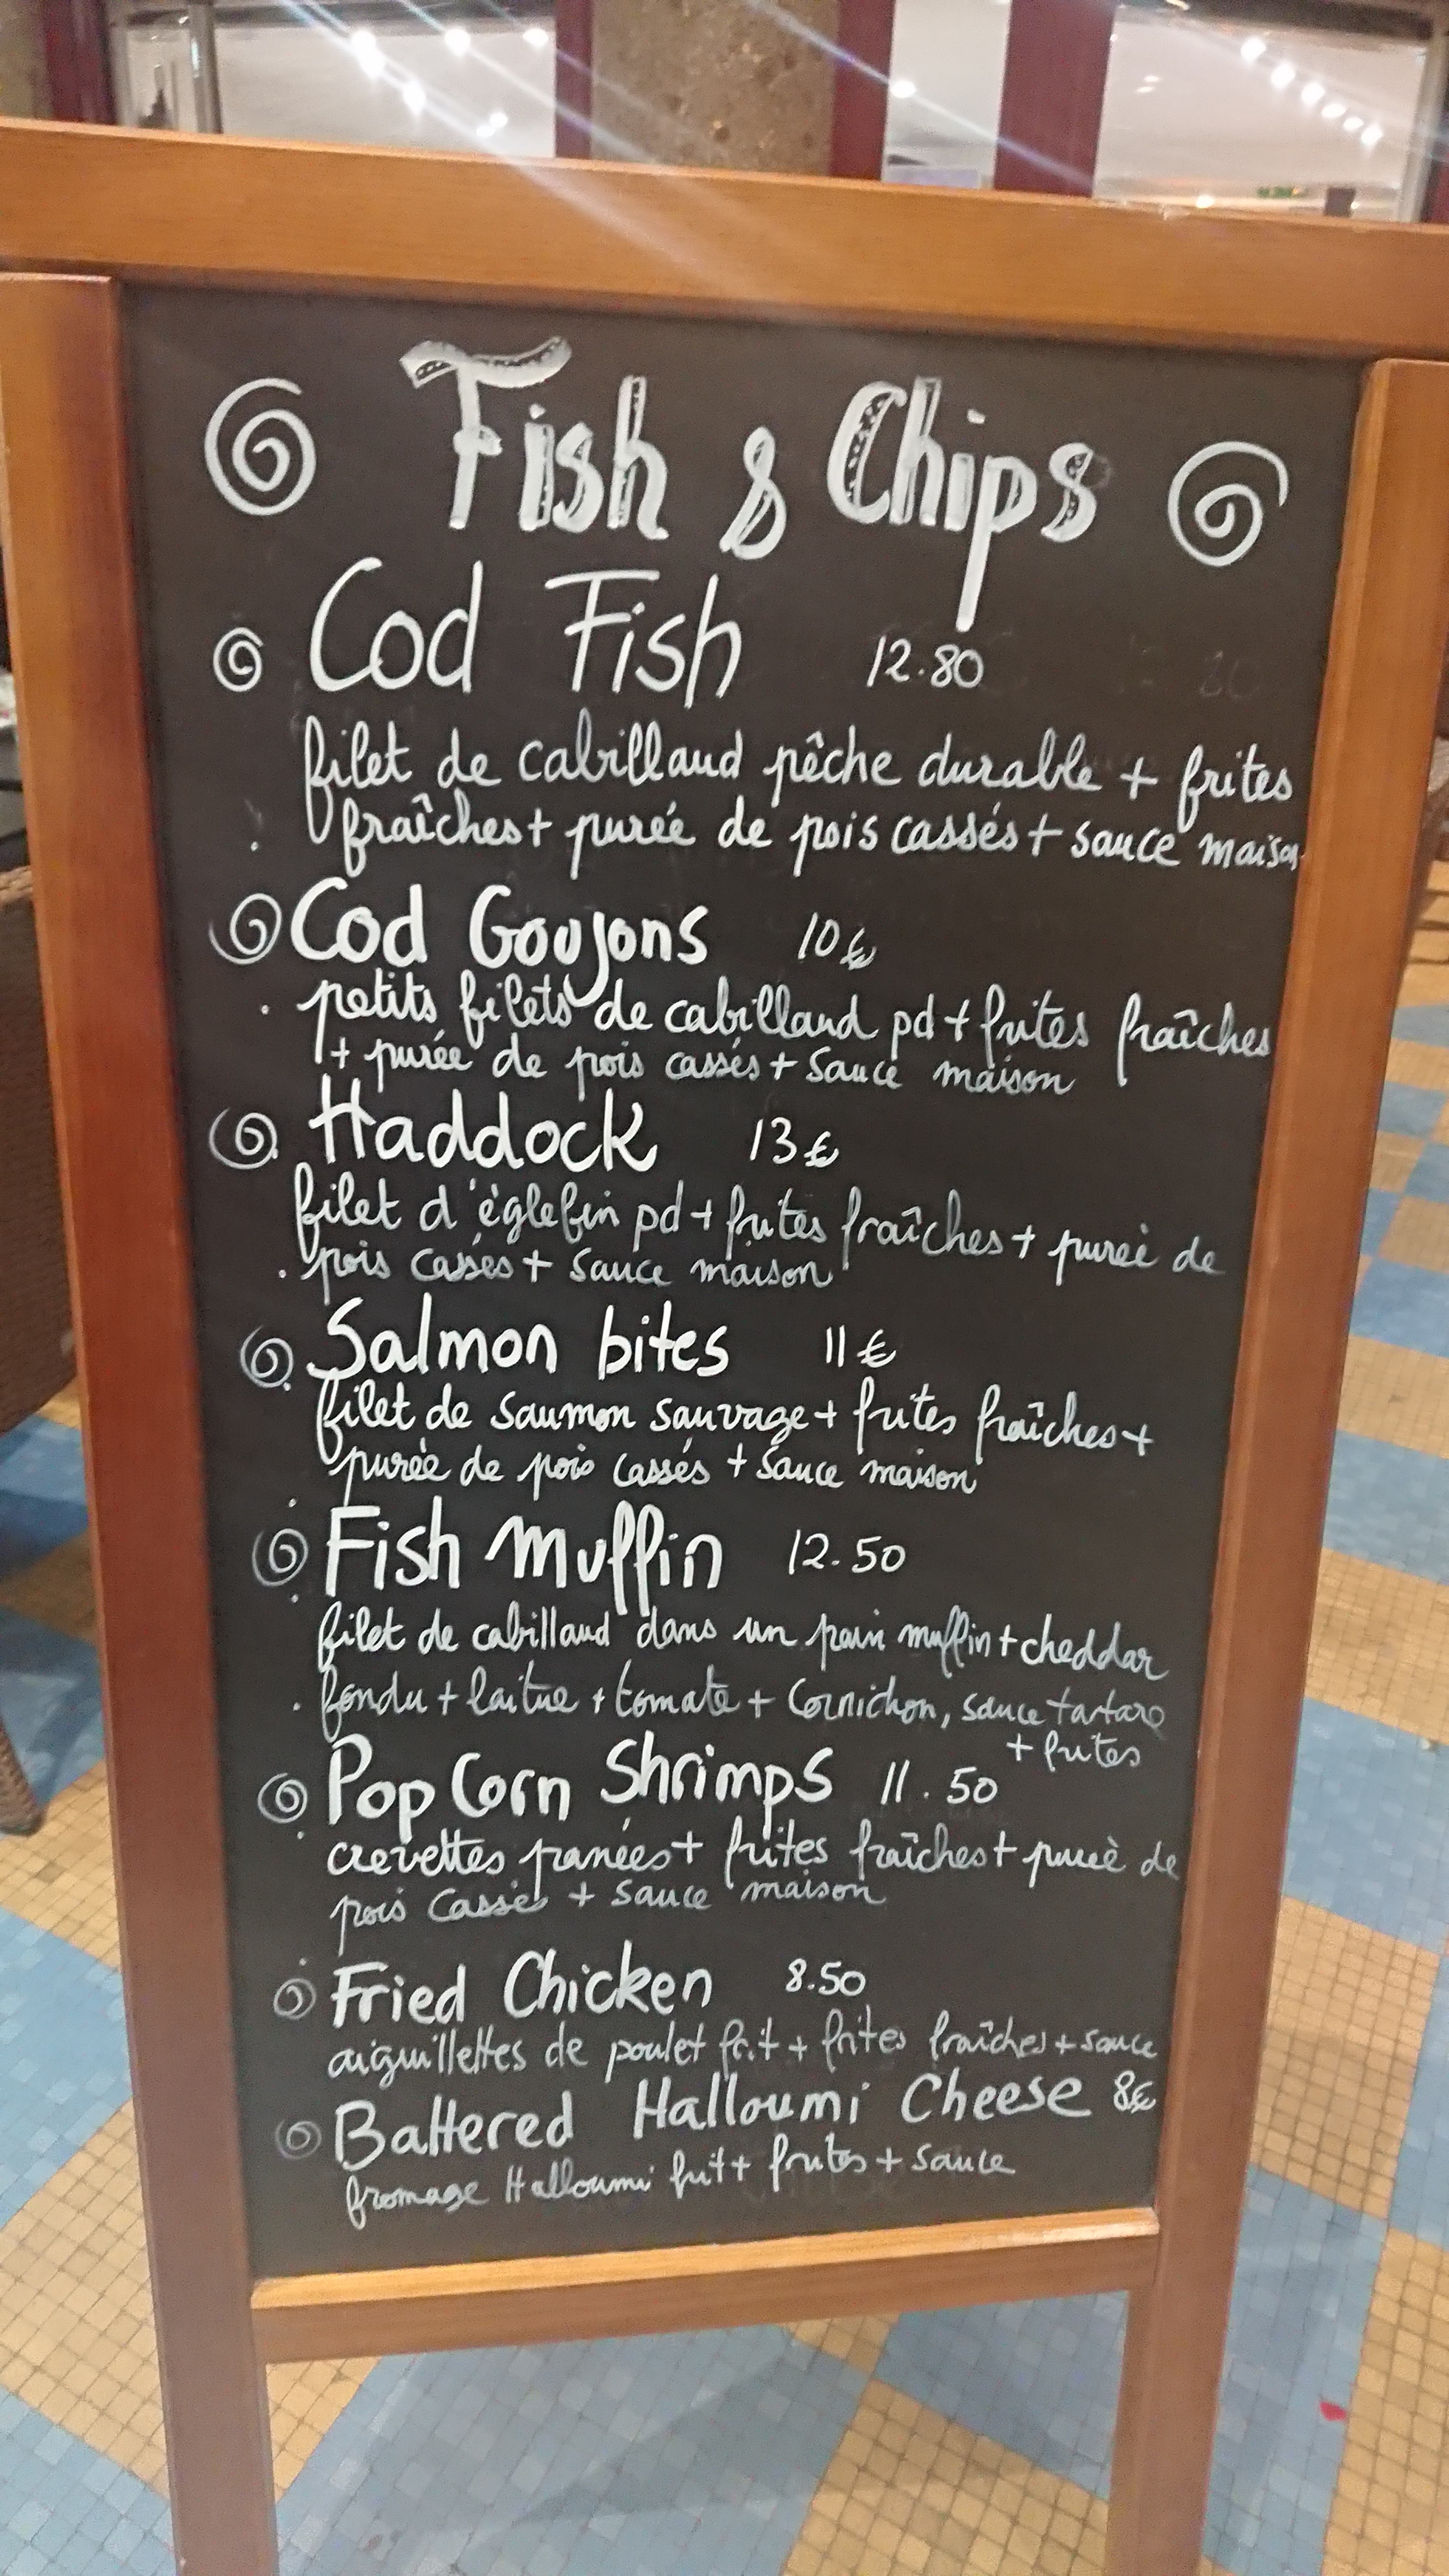 Fish & Chips
Cod Fish 12.80
filet de cabillaud pêche durable + frites
fraîches + purée de pois cassés + sauce maison
Cod Goujons 10€
petits filets de cabillaud pd + frites fraîches
+ purée de pois cassés + sauce maison
Haddock 13€
filet d'églefin pd + frites fraîches + purée de
pois cassés + sauce maison
Salmon bites 11€
filet de saumon sauvage + frites fraîches +
purée de pois cassés + sauce maison
Fish muffin 12.50
filet de cabillaud dans un pain muffin + cheddar
fondu + laitue + tomate + cornichon, sauce tartare
+ frites
Pop Corn Shrimps 11.50
crevettes panées + frites fraîches + purée de
pois cassés + sauce maison
Fried Chicken 8.50
aiguillettes de poulet frit + frites fraîches + sauce
Battered Halloumi Cheese 8€
fromage Halloumi frit + frites + sauce